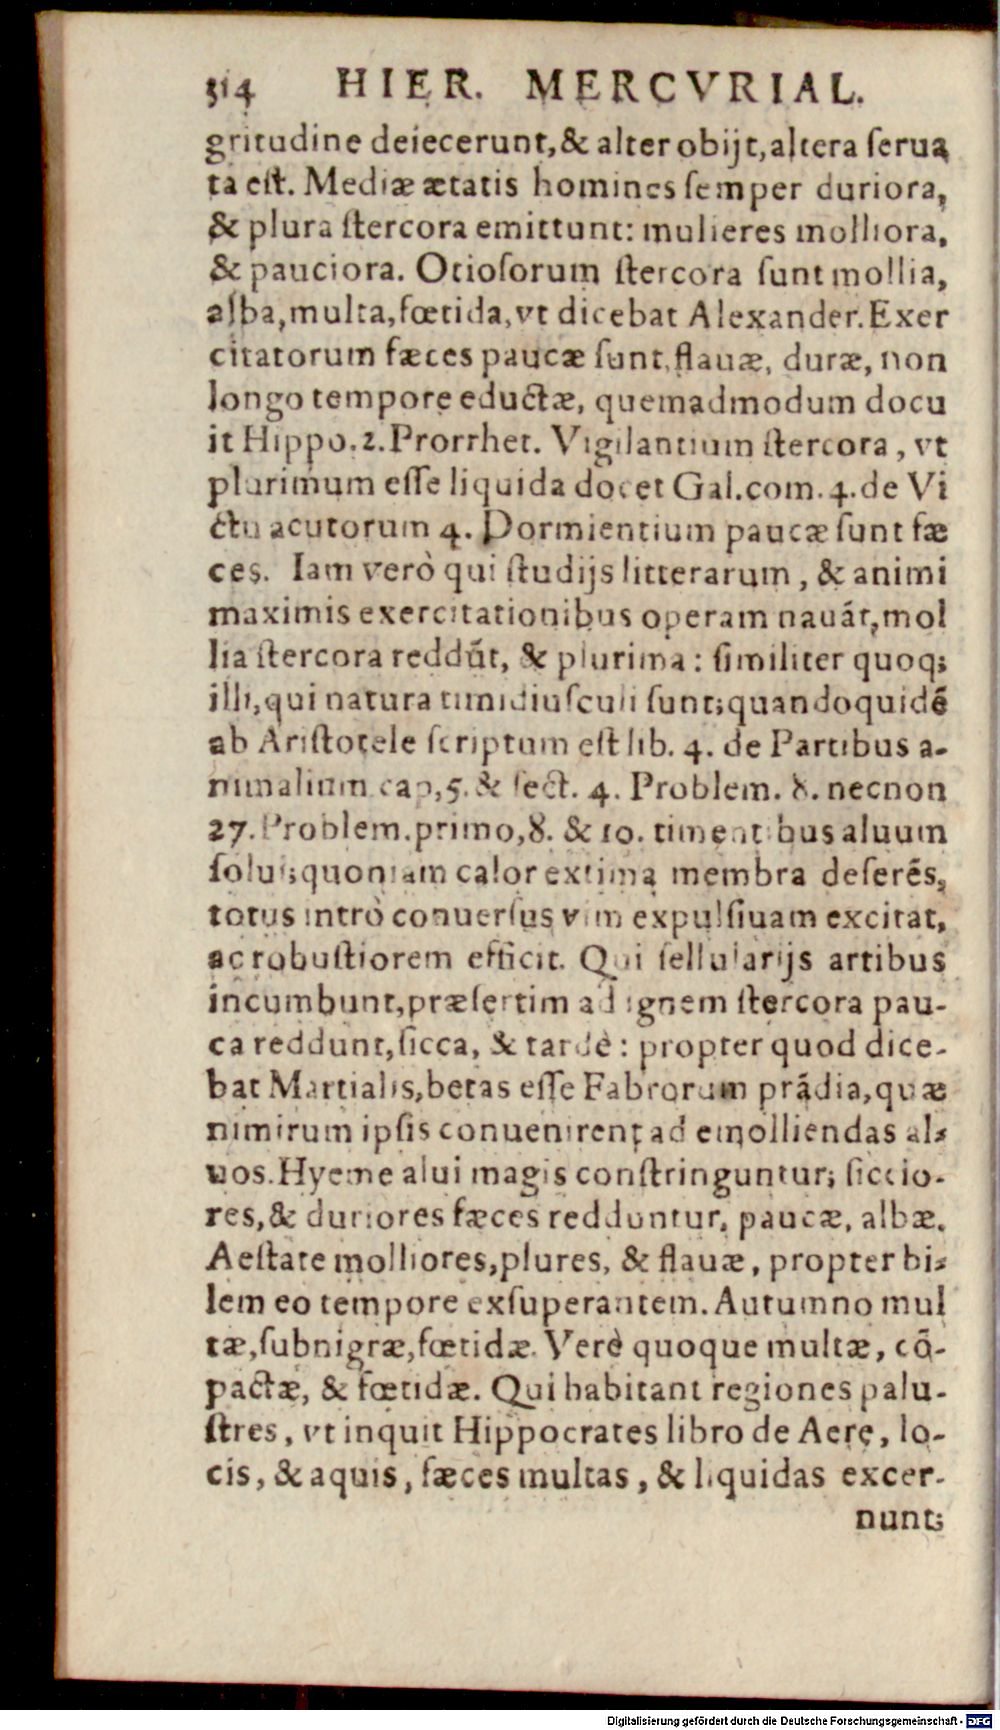 314 HIER. MERCVRIAL.
gritudine deiecerunt,& alter obijt,altera ſerua
ta eſt. Mediæ ætatis homines ſemper duriora,
& plura ſtercora emittunt: mulieres molliora,
& pauciora. Otioſorum ſtercora ſunt mollia,
alba,multa,fœtida,vt dicebat Alexander.Exer
citatorum fæces paucæ ſunt,flauæ, duræ, non
longo tempore eductæ, quemadmodum docu
it Hippo.2.Prorrhet. Vigilantium ſtercora , vt
plurimum eſſe liquida docet Gal.com.4.de Vi
ctu acutorum 4. Dormientium paucæ ſunt fæ
ces. Iam verò qui ſtudijs litterarum , & animi
maximis exercitationibus operam nauãt,mol
lia ſtercora reddũt, & plurima : ſimiliter quoq;
illi,qui natura timidiuſculi ſunt;quandoquidẽ
ab Ariſtotele ſcriptum eſt lib. 4. de Partibus a-
nimalium cap,5. & ſect. 4. Problem. 8. necnon
27.Problem.primo,8. & 10. timentibus aluum
ſolui;quoniam calor extima membra deſerẽs,
totus intrò conuerſus vim expulſiuam excitat,
ac robuſtiorem efficit. Qui ſellularijs artibus
incumbunt,præſertim ad ignem ſtercora pau-
ca reddunt,ſicca, & tardè : propter quod dice-
bat Martialis,betas eſſe Fabrorum prãdia,quæ
nimirum ipſis conuenirent ad emolliendas al-
uos.Hyeme alui magis conſtringuntur; ſiccio-
res,& duriores fæces redduntur, paucæ, albæ.
Aeſtate molliores,plures, & flauæ, propter bi-
lem eo tempore exſuperantem. Autumno mul
tæ,ſubnigræ,fœtidæ. Verè quoque multæ, cõ-
pactæ, & fœtidæ. Qui habitant regiones palu-
ſtres , vt inquit Hippocrates libro de Aere, lo-
cis, & aquis , fæces multas , & liquidas excer-
nunt;
Digitalisierung gefördert durch die Deutsche Forschungsgemeinschaft - DFG